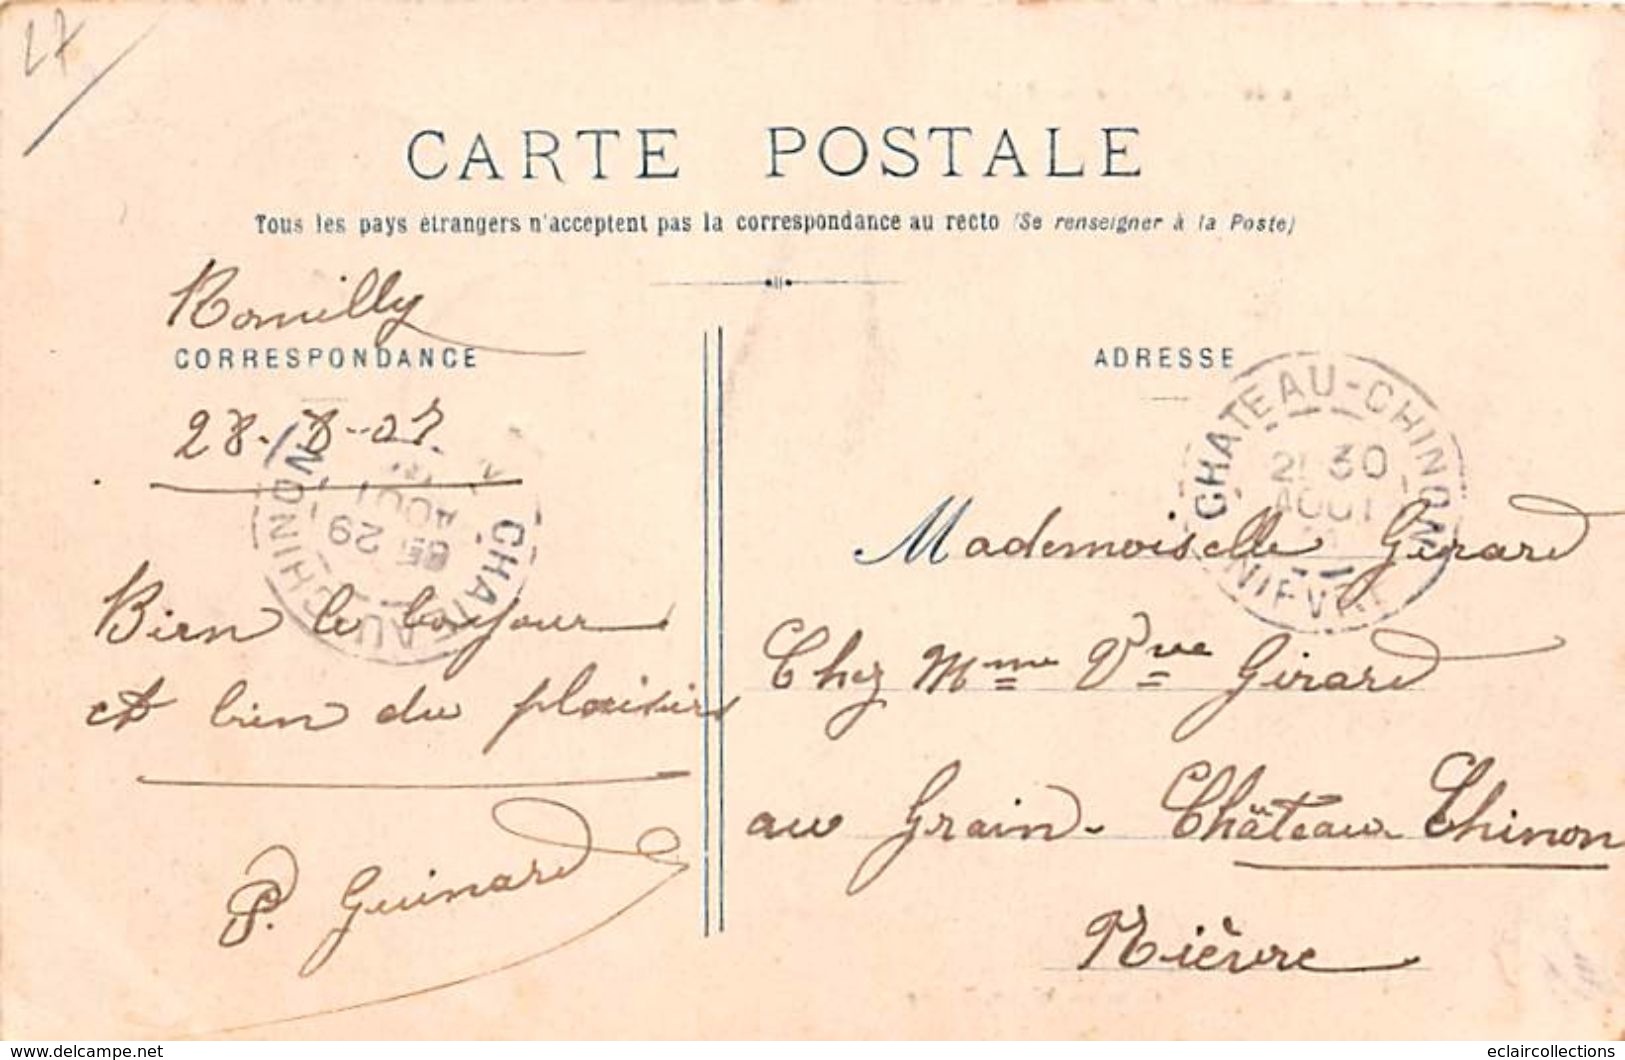 27
CARTE POSTALE
Tous les pays étrangers n'acceptent pas la correspondance au recto (Se renseigner à la Poste)
Romilly
CORRESPONDANCE
28-8-07
Bien le bonjour
et bien du plaisirs
P. Guinard
ADRESSE
CHATEAU-CHINON
21 30
AOUT
NIEVRE
CHATEAU-CHINON
29
AOUT
Mademoiselle Girard
Chez Mme Vve Girard
au Grain - Château Chinon
Nièvre
www.delcampe.net
eclaircollections